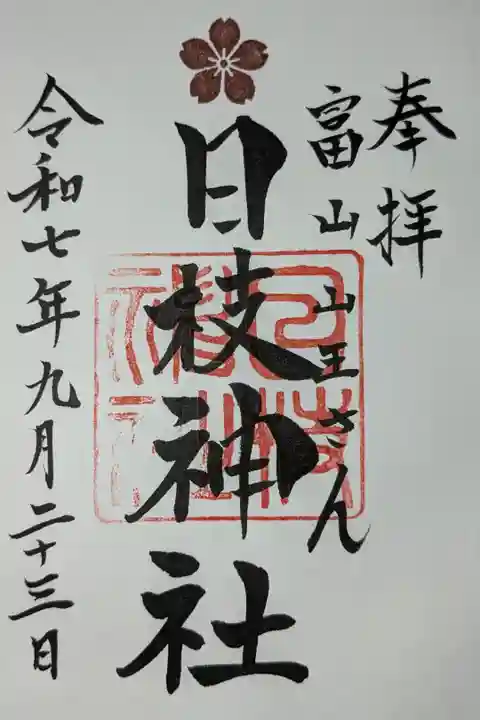 奉拝
富山 山王さん
日枝神社
令和七年九月二十三日